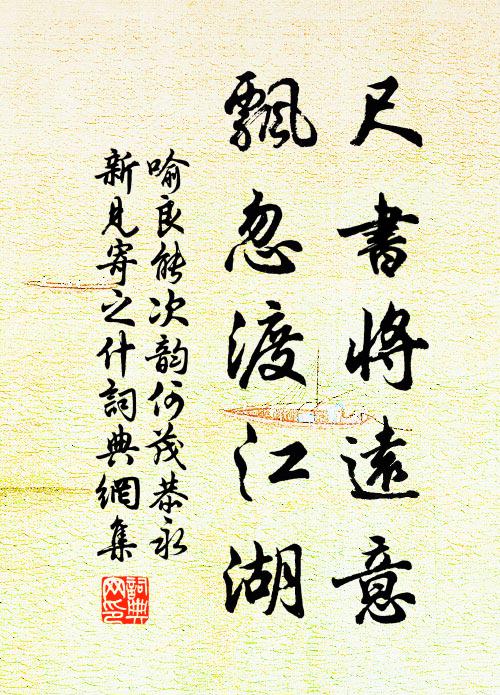 尺書將遠意
飄忽渡江湖
喻良能次韵何茂恭永
新見寄之什詞典網集
詞典
网印